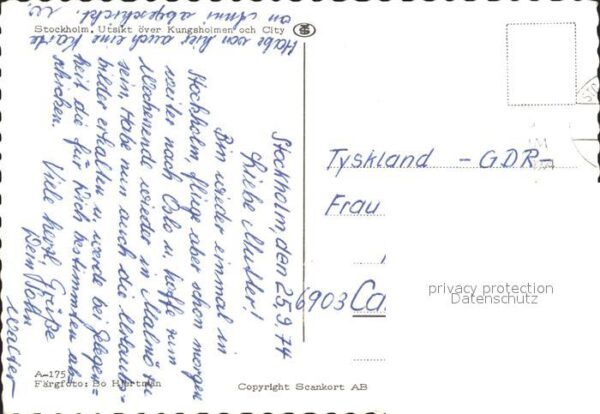 Stockholm. Utsikt över Kungsholmen och City
Stockholm, den 25.9.74
Liebe Mutter!
Bin wieder einmal in
Stockholm, fliege aber schon morgen
weiter nach Oslo u. hoffe zum
Wochenende wieder in Malmö zu
sein. Habe nun auch die Urlaubs-
bilder erhalten u. werde bei Gelegen=
heit die für Dich bestimmten ab-
schicken. Viele herzl. Grüße
Dein Sohn
Walter
Habe von hier auch eine Karte
an Anni abgeschickt.
Tyskland -GDR-
Frau
6903 Ca
privacy protection
Datenschutz
A-175
Färgfoto: Bo Hjertman
Copyright Scankort AB